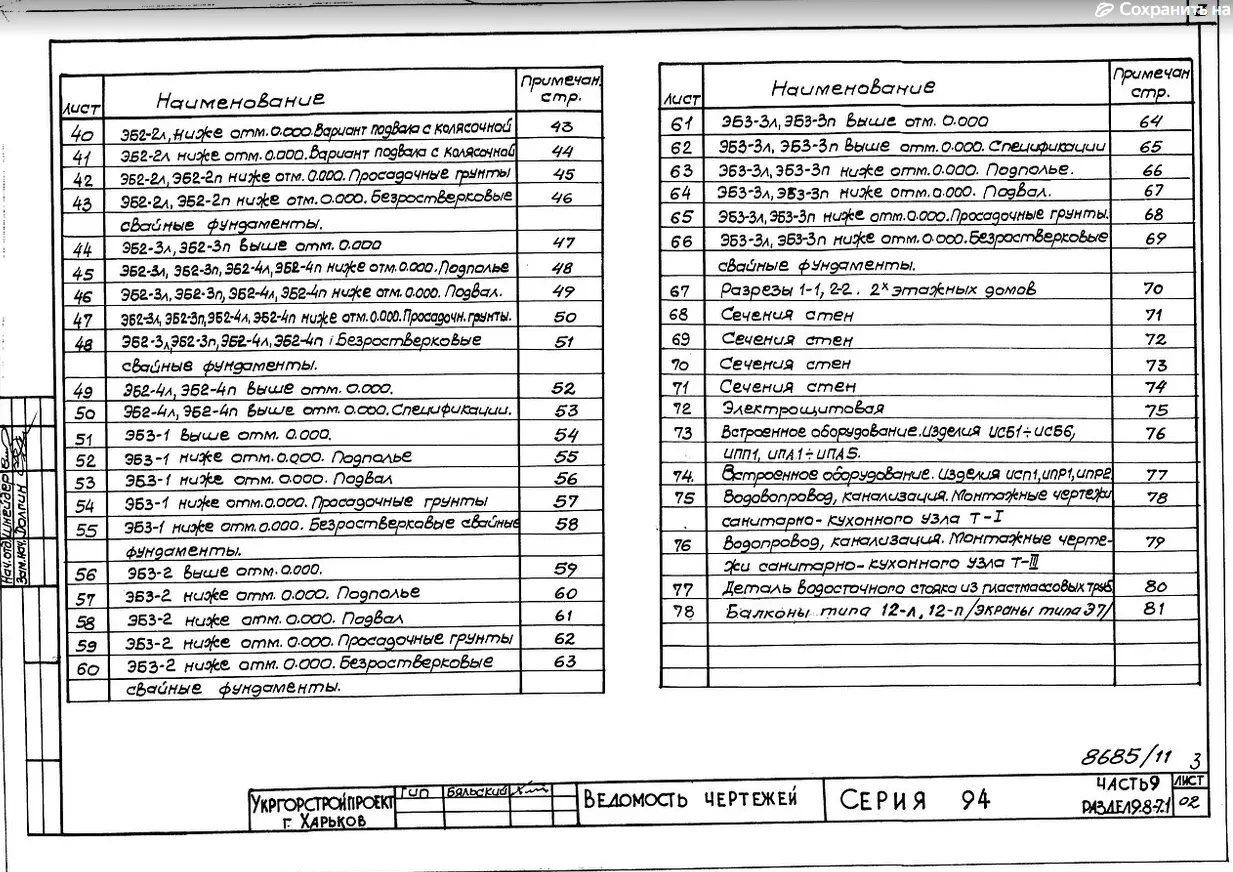 Сохранить на
Лист Наименование Примечан. стр.
40 ЭБ2-2л, ниже отм. 0.000. Вариант подвала с колясочной 43
41 ЭБ2-2л ниже отм. 0.000. Вариант подвала с колясочной 44
42 ЭБ2-2л, ЭБ2-2п ниже отм. 0.000. Просадочные грунты 45
43 ЭБ2-2л, ЭБ2-2п ниже отм. 0.000. Безростверковые 46
свайные фундаменты.
44 ЭБ2-3л, ЭБ2-3п выше отм. 0.000 47
45 ЭБ2-3л, ЭБ2-3п, ЭБ2-4л, ЭБ2-4п ниже отм. 0.000. Подполье 48
46 ЭБ2-3л, ЭБ2-3п, ЭБ2-4л, ЭБ2-4п ниже отм. 0.000. Подвал. 49
47 ЭБ2-3л, ЭБ2-3п, ЭБ2-4л, ЭБ2-4п ниже отм. 0.000. Просадочн. грунты. 50
48 ЭБ2-3л, ЭБ2-3п, ЭБ2-4л, ЭБ2-4п Безростверковые 51
свайные фундаменты.
49 ЭБ2-4л, ЭБ2-4п выше отм. 0.000. 52
50 ЭБ2-4л, ЭБ2-4п выше отм. 0.000. Спецификации. 53
51 ЭБ3-1 выше отм. 0.000. 54
52 ЭБ3-1 ниже отм. 0.000. Подполье 55
53 ЭБ3-1 ниже отм. 0.000. Подвал 56
54 ЭБ3-1 ниже отм. 0.000. Просадочные грунты 57
55 ЭБ3-1 ниже отм. 0.000. Безростверковые свайные 58
фундаменты.
56 ЭБ3-2 выше отм. 0.000. 59
57 ЭБ3-2 ниже отм. 0.000. Подполье 60
58 ЭБ3-2 ниже отм. 0.000. Подвал 61
59 ЭБ3-2 ниже отм. 0.000. Просадочные грунты 62
60 ЭБ3-2 ниже отм. 0.000. Безростверковые 63
свайные фундаменты.
Лист Наименование Примечан стр.
61 ЭБ3-3л, ЭБ3-3п выше отм. 0.000 64
62 ЭБ3-3л, ЭБ3-3п выше отм. 0.000. Спецификации 65
63 ЭБ3-3л, ЭБ3-3п ниже отм. 0.000. Подполье. 66
64 ЭБ3-3л, ЭБ3-3п ниже отм. 0.000. Подвал. 67
65 ЭБ3-3л, ЭБ3-3п ниже отм. 0.000. Просадочные грунты. 68
66 ЭБ3-3л, ЭБ3-3п ниже отм. 0.000. Безростверковые 69
свайные фундаменты.
67 Разрезы 1-1, 2-2. 2х этажных домов 70
68 Сечения стен 71
69 Сечения стен 72
70 Сечения стен 73
71 Сечения стен 74
72 Электрощитовая 75
73 Встроенное оборудование. Изделия ИСБ1÷ИСБ6, 76
ИПП1, ИПА1÷ИПА5.
74. Встроенное оборудование. Изделия ИСП1, ИПР1, ИПР2 77
75 Водовопровод, канализация. Монтажные чертежи 78
санитарно-кухонного узла Т-I
76 Водопровод, канализация. Монтажные черте- 79
жи санитарно-кухонного узла Т-III
77 Деталь водосточного стояка из пластмассовых труб 80
78 Балконы типа 12-л, 12-п /Экраны типа Э7/ 81
Нач. отд Шнейдер
Зам. нач. Долгин
8685/11 3
Укргорстройпроект
г. Харьков
Гип Бяльский
Ведомость чертежей
Серия 94
Часть 9
Раздел 9.8-7.1
Лист
02